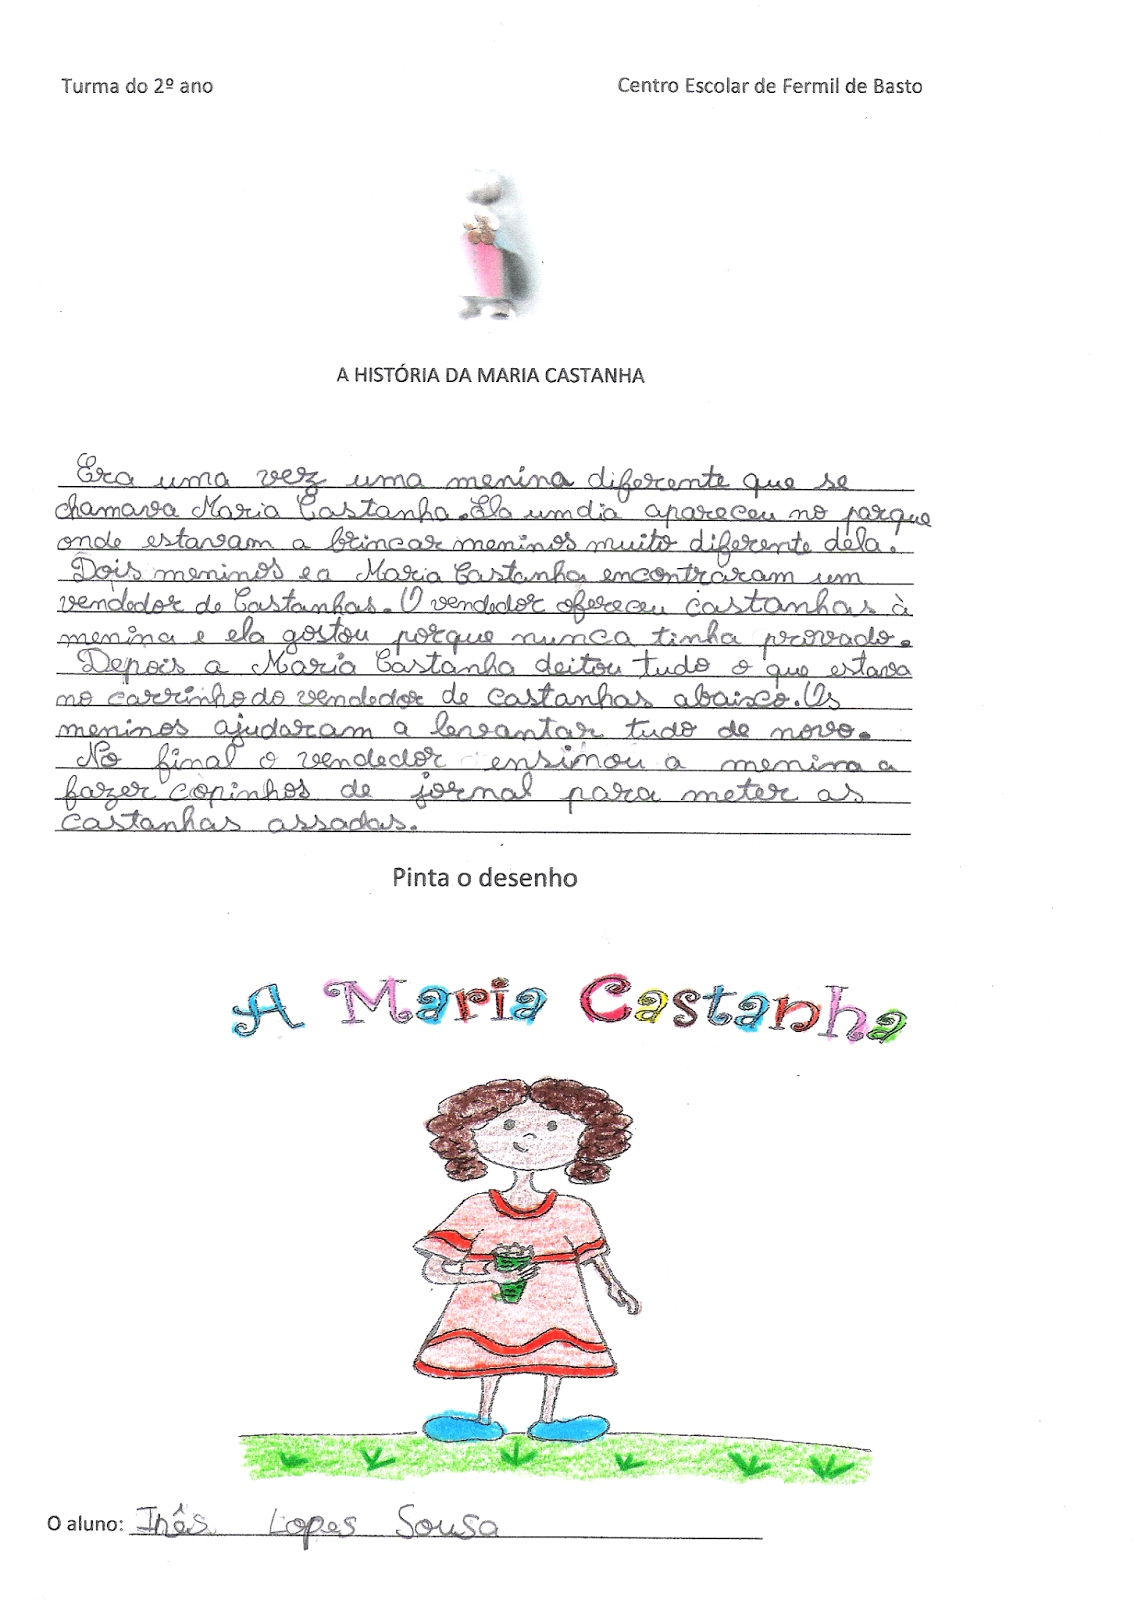 Turma do 2º ano Centro Escolar de Fermil de Basto
A HISTÓRIA DA MARIA CASTANHA
Era uma vez uma menina diferente que se
chamava Maria Castanha. Ela um dia apareceu no parque
onde estavam a brincar meninos muito diferente dela.
Dois meninos e a Maria Castanha encontraram um
vendedor de Castanhas. O vendedor ofereceu castanhas à
menina e ela gostou porque nunca tinha provado.
Depois a Maria Castanha deitou tudo o que estava
no carrinho do vendedor de castanhas abaixo. Os
meninos ajudaram a levantar tudo de novo.
No final o vendedor ensinou a menina a
fazer copinhos de jornal para meter as
castanhas assadas.
Pinta o desenho
A Maria Castanha
O aluno: Inês Lopes Sousa